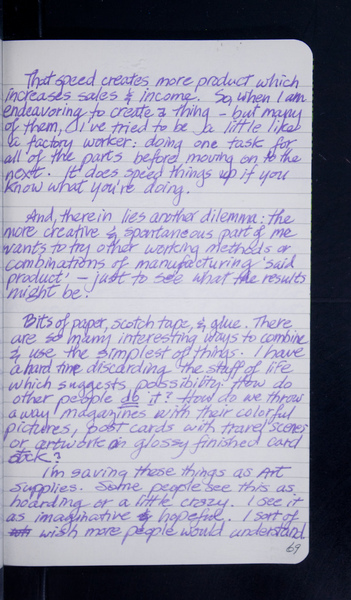 That speed creates more product which
increases sales & income. So, when I am
endeavoring to create a thing - but many
of them, I've tried to be a little like
a factory worker: doing one task for
all of the parts before moving on to the
next. It does speed things up if you
know what you're doing.
And, therein lies another dilemma: the
more creative & spontaneous part of me
wants to try other working methods or
combinations of manufacturing 'said
product' - just to see what the results
might be.
Bits of paper, scotch tape, & glue. There
are so many interesting ways to combine
& use the simplest of things. I have
a hard time discarding the stuff of life
which suggests possibility. How do
other people do it? How do we throw
away magazines with their colorful
pictures, post cards with travel scenes
or artwork on glossy finished card
stock?
I'm saving those things as Art
Supplies. Some people see this as
hoarding or a little crazy. I see it
as imaginative & hopeful. I sort of
wish more people would understand
69